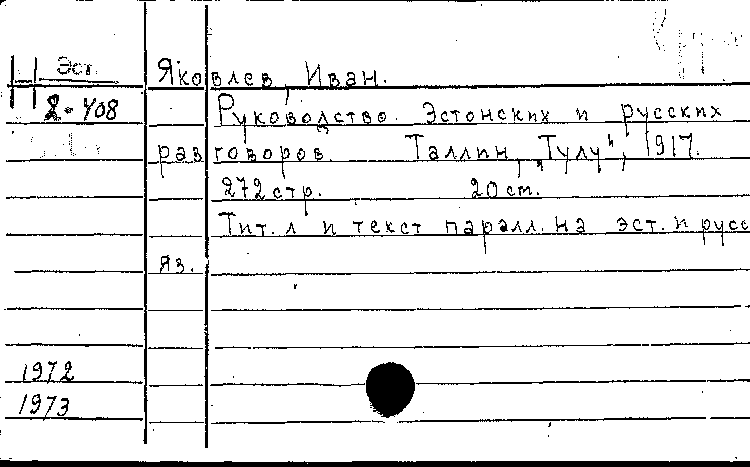 Эст.
Яковлев, Иван.
2-408
Руководство. Эстонских и русских
разговоров. Таллин, "Тулу", 1917.
272 стр. 20 cm.
Тит. л и текст паралл. на эст. и русс
яз.
1972
1973